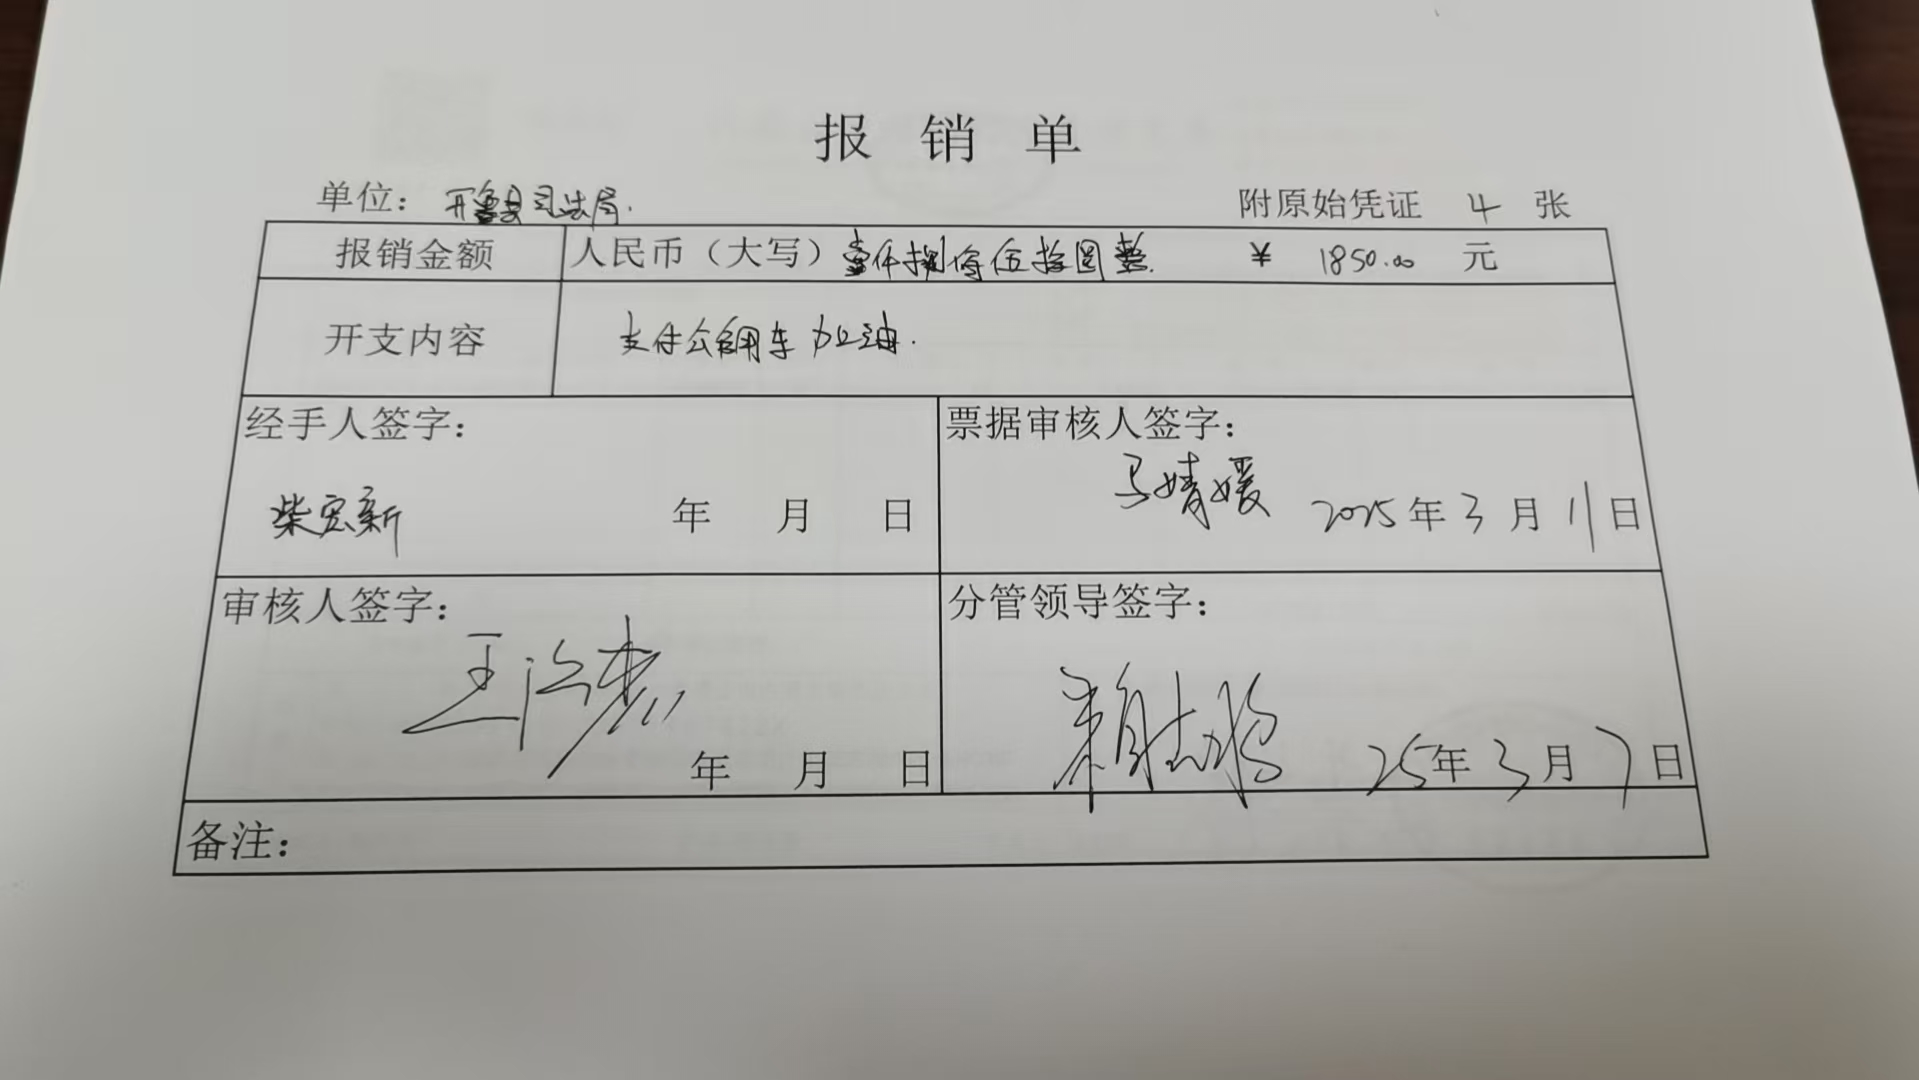 报销单
单位：开鲁县司法局. 附原始凭证 4 张
报销金额 人民币（大写）壹仟捌佰伍拾圆整. ¥ 1850.00 元
开支内容 支付公务用车加油.
经手人签字： 票据审核人签字：
柴宏新 年 月 日 马婧媛 2025年3月11日
审核人签字： 分管领导签字：
王 年 月 日 25年3月7日
备注：